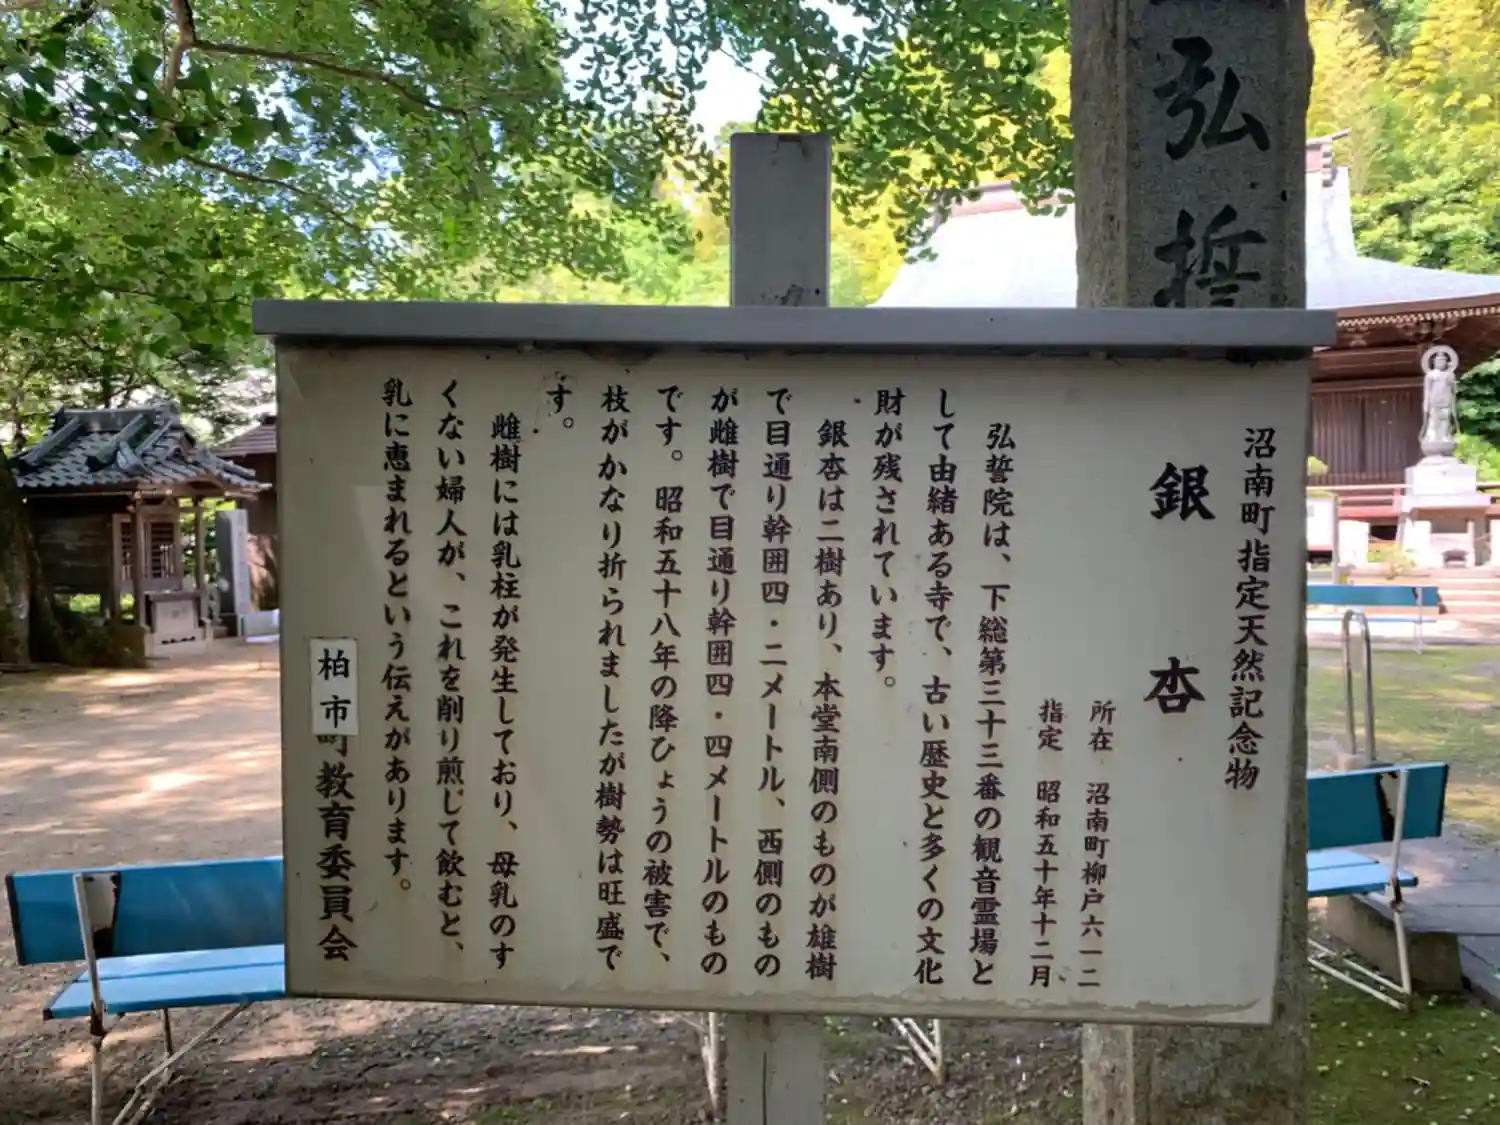 弘誓
沼南町指定天然記念物
銀杏
所在 沼南町柳戸六一二
指定 昭和五十年十二月
弘誓院は、下総第三十三番の観音霊場と
して由緒ある寺で、古い歴史と多くの文化
財が残されています。
銀杏は二樹あり、本堂南側のものが雄樹
で目通り幹囲四・二メートル、西側のもの
が雌樹で目通り幹囲四・四メートルのもの
です。昭和五十八年の降ひょうの被害で、
枝がかなり折られましたが樹勢は旺盛で
す。
雌樹には乳柱が発生しており、母乳のす
くない婦人が、これを削り煎じて飲むと、
乳に恵まれるという伝えがあります。
柏市町教育委員会